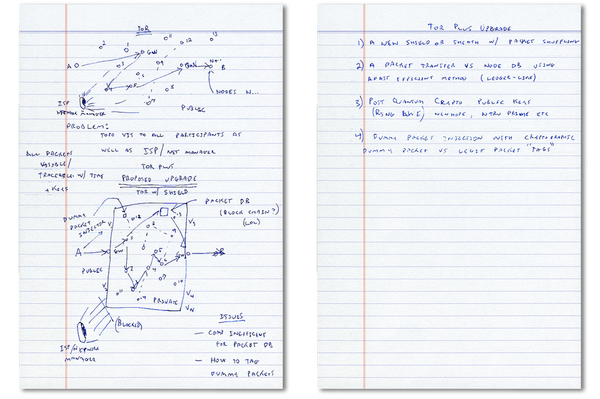 TOR
A
GW
GW
B
NODES N...
ISP
NETWORK MANAGER
PUBLIC
PROBLEM:
TOPO VIS TO ALL PARTICIPANTS AS
WELL AS ISP/NET MANAGER
ALL PACKETS
VISIBLE/
TRACEABLE W/ TIME
+ KEYS
TOR PLUS
PROPOSED UPGRADE
TOR W/ SHIELD
DUMMY
PACKET
INJECTOR
PACKET DB
(BLOCK CHAIN?)
A
GW
B
PUBLIC
PRIVATE
(BLOCKED)
ISP/NETWORK
MANAGER
ISSUES
— COMP INEFFICIENT
FOR PACKET DB
— HOW TO TAG
DUMMY PACKETS
TOR PLUS UPGRADE
1) A NEW SHIELD OR SHEATH W/ PACKET SHUFFLING
2) A PACKET TRANSFER VS NODE DB USING
EFFICIENT METHOD (LEDGER-LIKE)
3) POST QUANTUM CRYPTO PUBLIC KEYS
(RING LWE) NEWHOPE, NTRU PRIME ETC
4) DUMMY PACKET INSERTION WITH CRYPTOGRAPHIC
DUMMY PACKET VS LEGIT PACKET "TAGS"